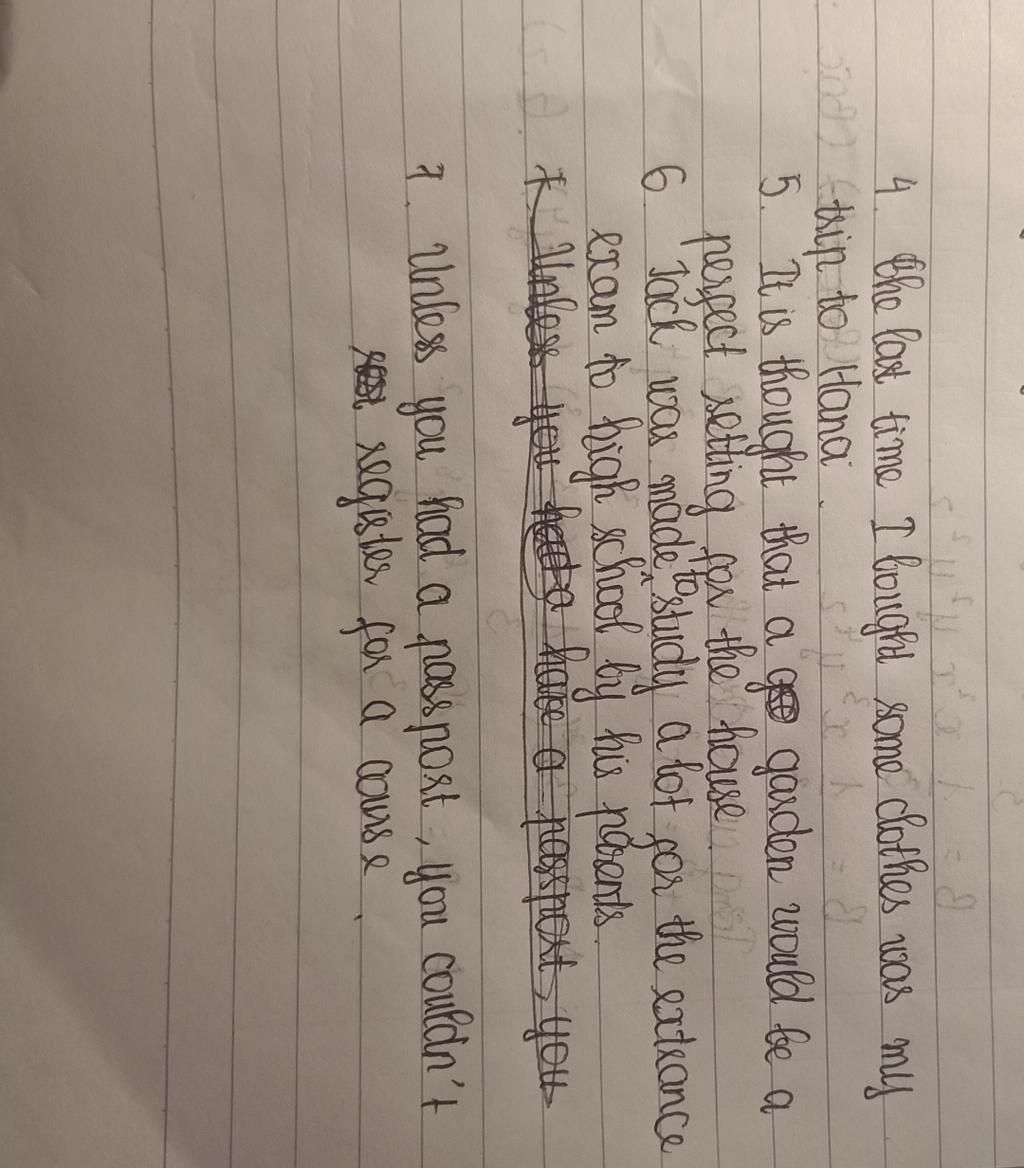 4. The last time I bought some clothes was my
trip to Hana.
5. It is thought that a garden would be a
perfect setting for the house.
6. Jack was made to study a lot for the extrance
exam to high school by his parents.
7. Unless you had a have a passport, you
7. Unless you had a passport, you couldn't
register for a course.